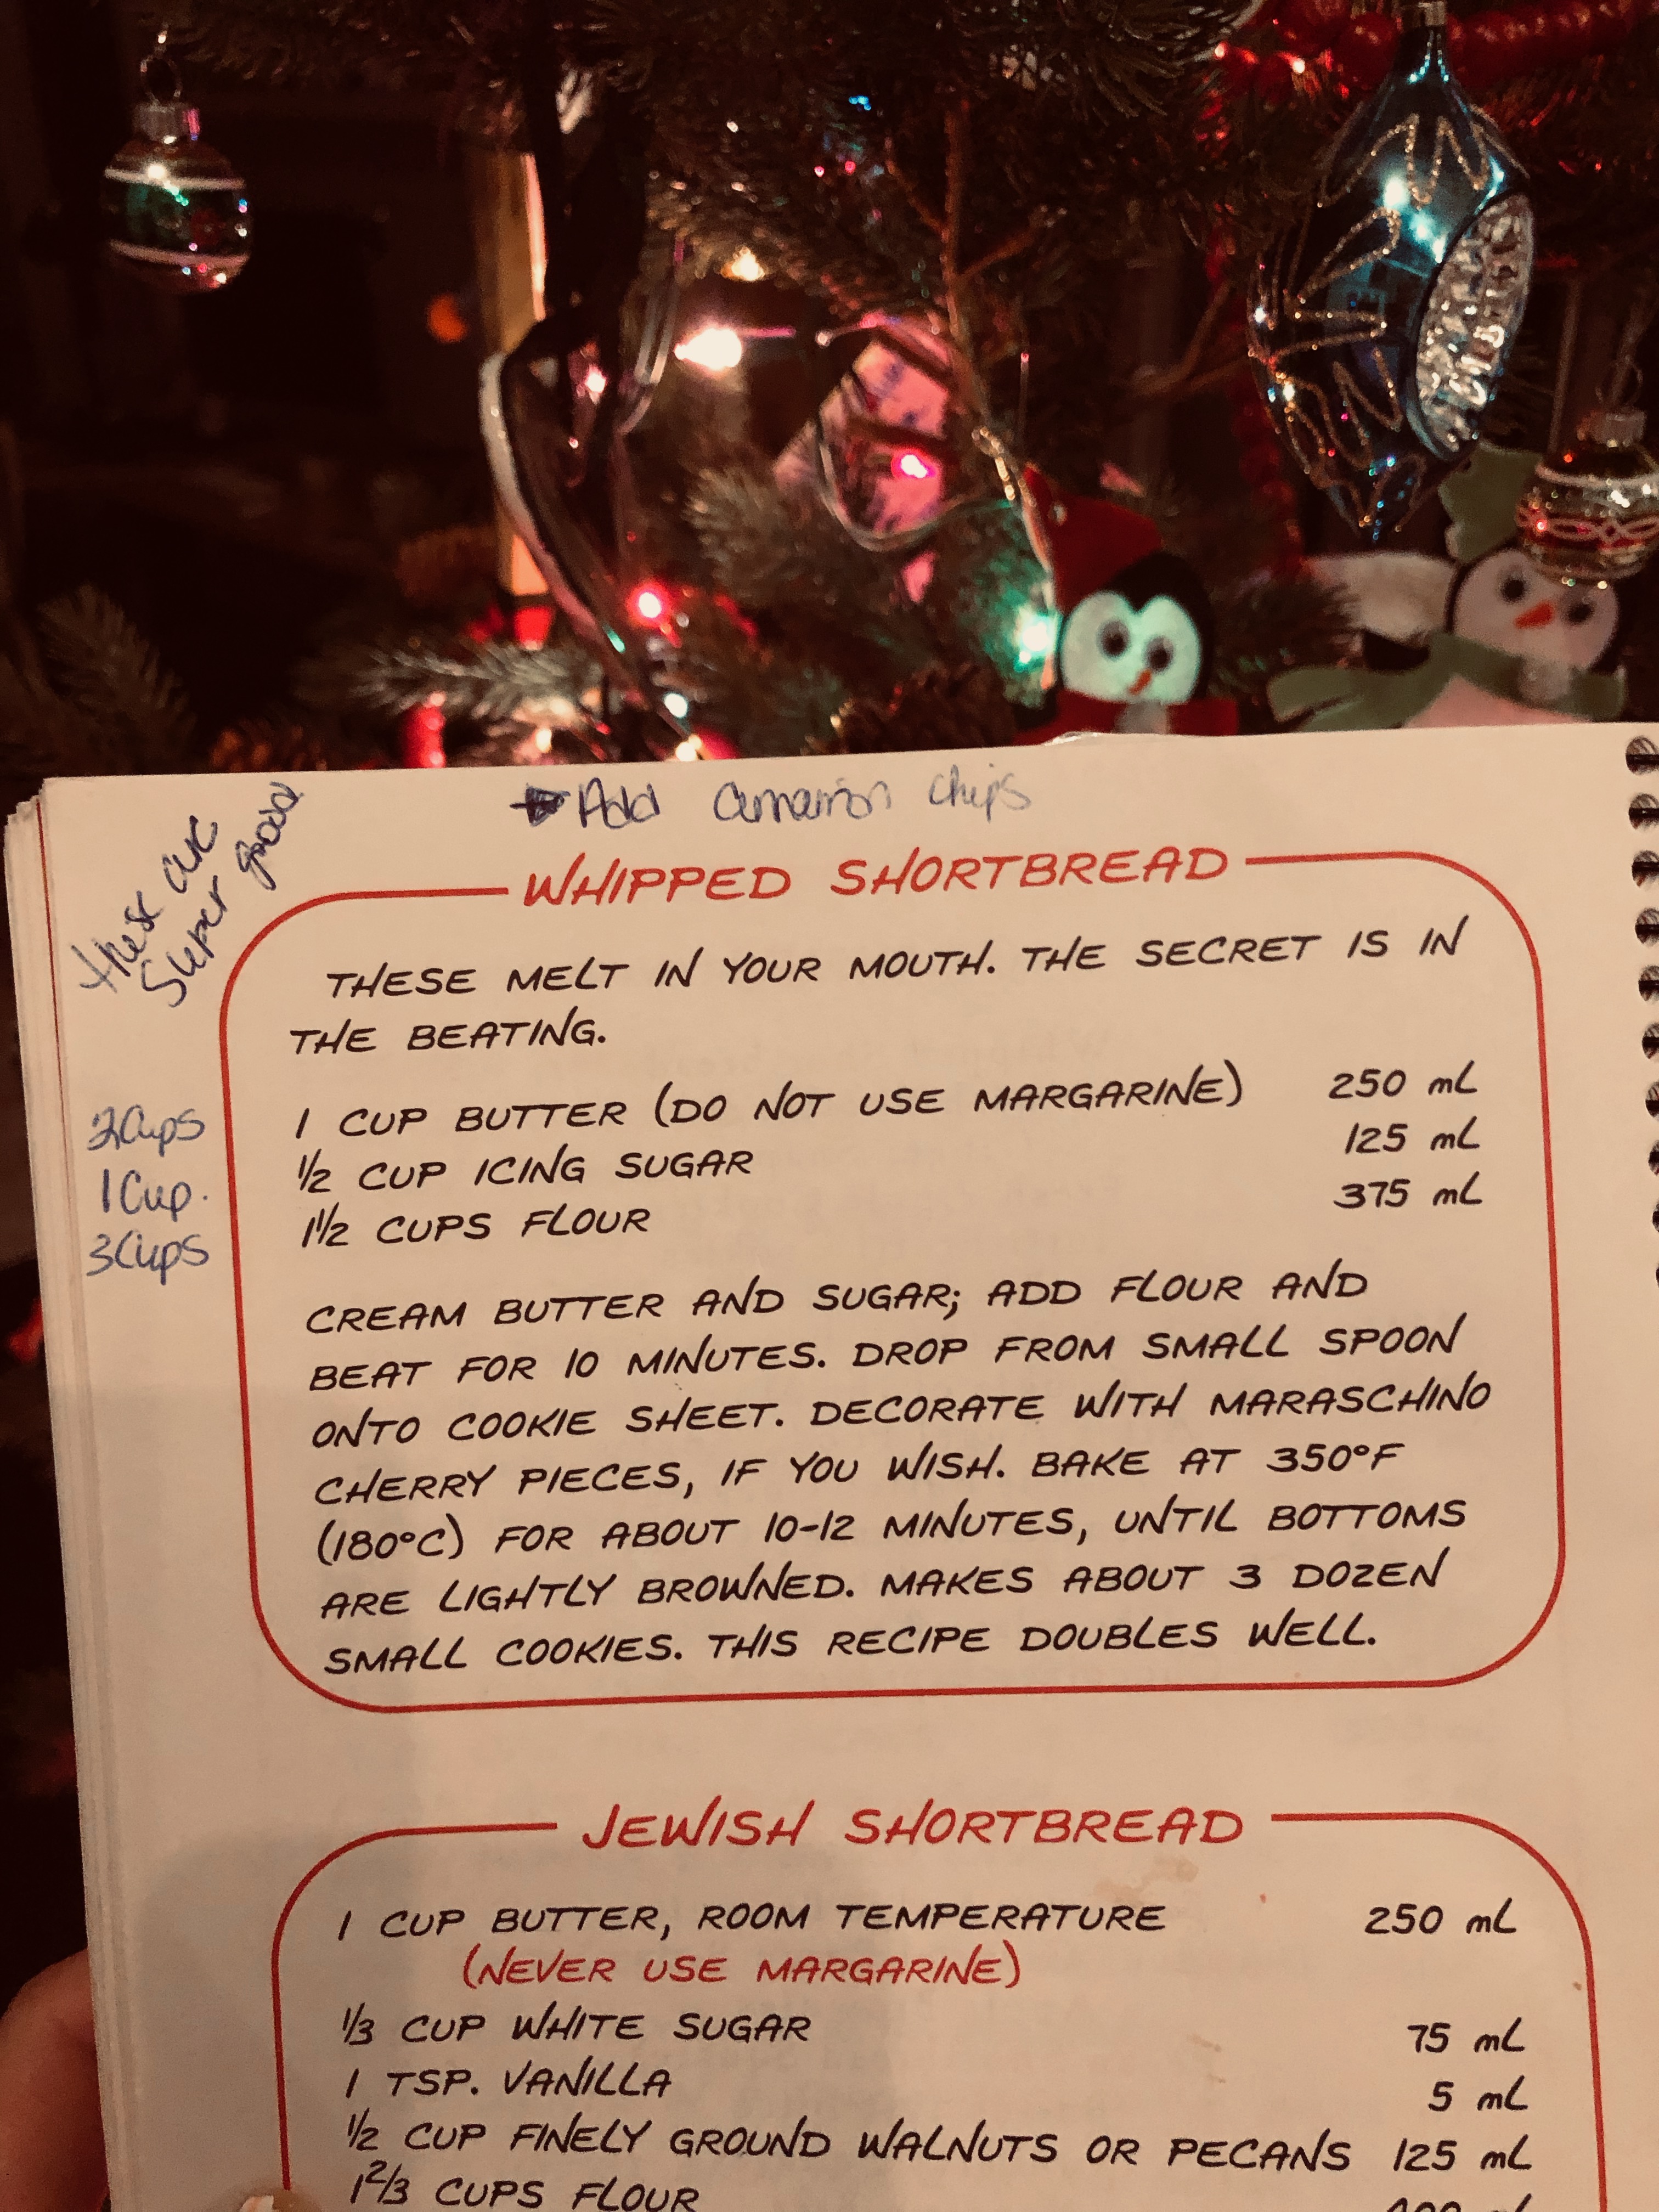 → Add Cinnamon chips
these are
Super good
WHIPPED SHORTBREAD
THESE MELT IN YOUR MOUTH. THE SECRET IS IN
THE BEATING.
2Cups 1 CUP BUTTER (DO NOT USE MARGARINE) 250 mL
1Cup. 1/2 CUP ICING SUGAR 125 mL
3Cups 1 1/2 CUPS FLOUR 375 mL
CREAM BUTTER AND SUGAR; ADD FLOUR AND
BEAT FOR 10 MINUTES. DROP FROM SMALL SPOON
ONTO COOKIE SHEET. DECORATE WITH MARASCHINO
CHERRY PIECES, IF YOU WISH. BAKE AT 350°F
(180°C) FOR ABOUT 10-12 MINUTES, UNTIL BOTTOMS
ARE LIGHTLY BROWNED. MAKES ABOUT 3 DOZEN
SMALL COOKIES. THIS RECIPE DOUBLES WELL.
JEWISH SHORTBREAD
1 CUP BUTTER, ROOM TEMPERATURE 250 mL
(NEVER USE MARGARINE)
1/3 CUP WHITE SUGAR 75 mL
1 TSP. VANILLA 5 mL
1/2 CUP FINELY GROUND WALNUTS OR PECANS 125 mL
1 2/3 CUPS FLOUR